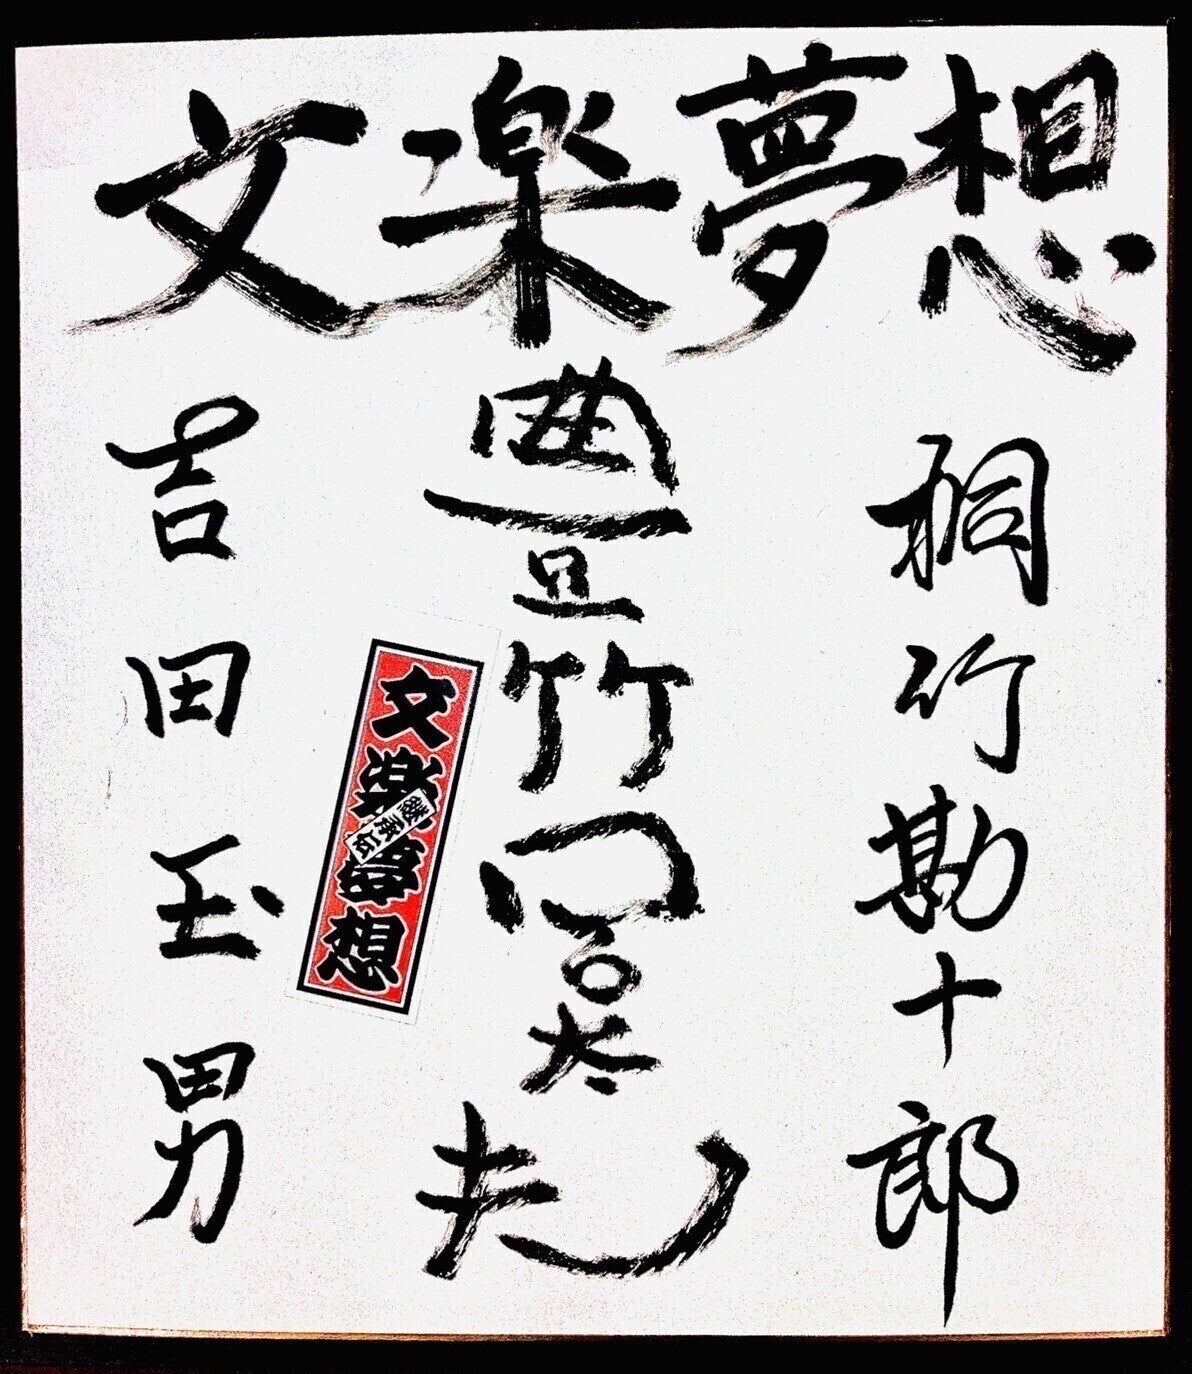 文楽夢想
桐竹勘十郎
豊竹呂太夫
吉田玉男
文楽夢想
継承伝